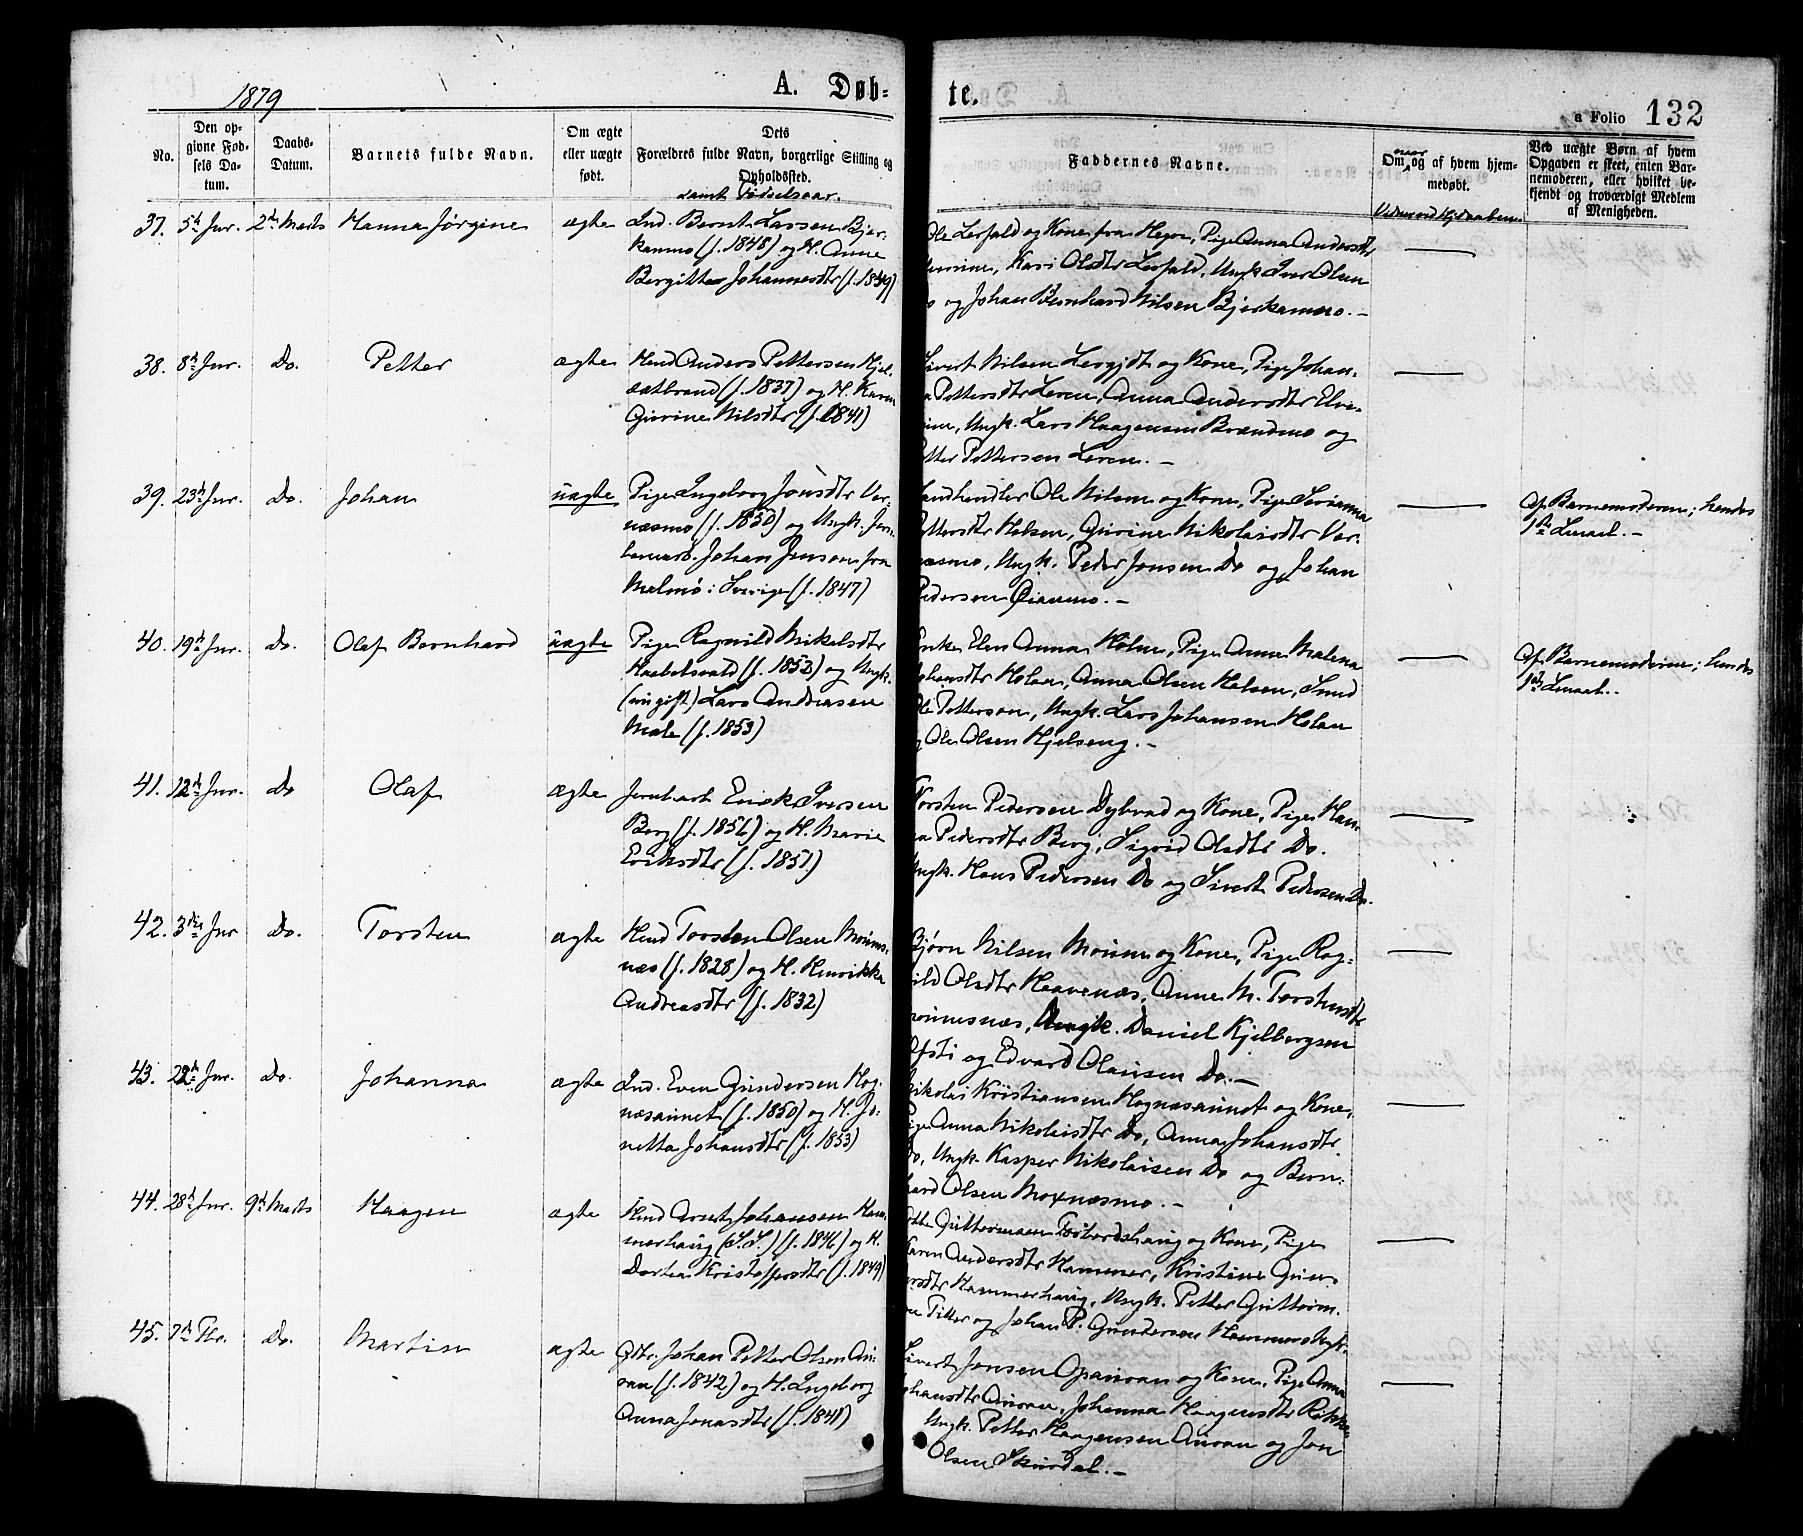 1879
A. Døb-
te.
a Folio 132
No.
Den op-
givne Fød-
sels Da-
tum.
Daabs-
Datum.
Barnets fulde Navn.
Om ægte
eller uægte
født.
Dets
Forældres fulde Navn, borgerlige Stilling og
Opholdssted.
samt Fødselsaar.
Faddernes Navne.
Om, og af hvem hjem-
medøbt.
Ved uægte Børn af hvem
Opgaven er skeet, enten Bar-
nemoderen, eller hvilket be-
kjendt og troværdigt Medlem
af Menigheden.
37. 5te Jnr. 2den Marts Hanna Jørgine ægte
Ind. Bernt Larsen Bjer-
kanmo (f. 1848) og H. Anne
Bergitta Johannesdtr (f. 1849)
Ole Lerfald og Kone fra Hegre, Pige Anna Andersdtr
Kari Olsdtr Lerfald, Ungk. Iver Olsen
og Johan Bernhard Nilsen Bjerkanmo. –
38. 8de Jnr. Do. Petter ægte
Hmd Anders Pettersen Hjel-
setbrand (f. 1837) og H. Karen
Gurine Nilsdtr (f. 1841)
Sivert Nilsen og Kone, Pige Johan-
na Pettersdtr Leren, Anna Andersdtr Elve-
Ungk. Lars Haagensen Brændmo og
Petter Pettersen Leren. –
39. 23de Jnr. Do. Johan uægte
Pige Ingeborg Jonsdtr Vær-
næsmo (f. 1850) og Ungk. Jern-
banearb. Johan Jenson fra
Malmø i Sverige (f. 1847)
Landhandler Ole Nilsen og Kone, Pige
Pettersdtr Halsen, Gurine Nikolaisdtr Vær-
næsmo, Ungk. Peder Jonsen Do og Johan
Pedersen
Af Barnemoderen; hendes
1ste Leiermaal. –
40. 19de Jnr. Do. Olaf Bernhard uægte
Pige Ragnild Mikelsdtr
(f. 1852) og Ungk.
(nu gift) Lars Andreasen
Mæle (f. 1853)
Enke Elen Anna Holan, Pige Anne Malena
Johansdtr Holan, Anna Olsen Halsen, Smed
Ole Petterson, Ungk. Lars Johansen Holan
og Ole Olsen Hjelseng. –
Af Barnemoderen; hendes
1ste
41. 12te Jnr. Do Olaf ægte
Jernbarb. Erik Iversen
Berg (f. 1856) og H. Marie
Eriksdtr (f. 1851)
Torsten Pedersen Dybvad og Kone, Pige Han-
na Pedersdtr Berg, Sigrid Olsdtr Do.
Ungk. Hans Pedersen Do og Sivert Pedersen Do.
42. 3die Jnr Do. Torsten ægte
Hmd Torsten Olsen
næs (f. 1828) og H. Henrikka
Andreasdtr (f. 1832)
Bjørn Nilsen og Kone, Pige Rag-
nild Olsdtr Haavenæs, Anne M. Torstensdtr
Ungk. Daniel Kjelbergsen
og Edvard Olausen Do. –
43. 22de Jnr. Do. Johanna ægte
Ind. Even Gundersen Hog-
næsaunet (f. 1850) og H. Jo-
netta Johansdtr (f. 1853)
Nikolai Kristiansen Hognæsaunet og Kone,
Pige Anna Nikolaisdtr Do, Anna Johansdtr
Do, Ungk. Kasper Nikolaisen Do og Bern-
hard Olsen Moxnæsmo. –
44. 28de Jnr. 9de Marts Haagen ægte
Hmd Arnt Johansen Ham-
merhaug (S.S.) (f. 1846) og H.
Dortea Kristoffersdtr (f. 1849)
Guttormsen og Kone, Pige
Karen Andersdtr Hammer, Kristine Gun-
dersdtr Hammerhaug, Ungk. Petter Guttorm-
sen Titter og Johan P. Gundersen
45. 7de Fbr. Do. Martin ægte
Gbr. Johan Petter Olsen Au-
ran (f. 1842) og H. Ingeborg
Anna Jonasdtr (f. 1841)
Sivert Jonsen Opauran og Kone, Pige Anna
Johansdtr Auran, Johanna Haagensdtr
Ungk. Petter Haagensen Auran og Jon
Olsen Skurdal. –